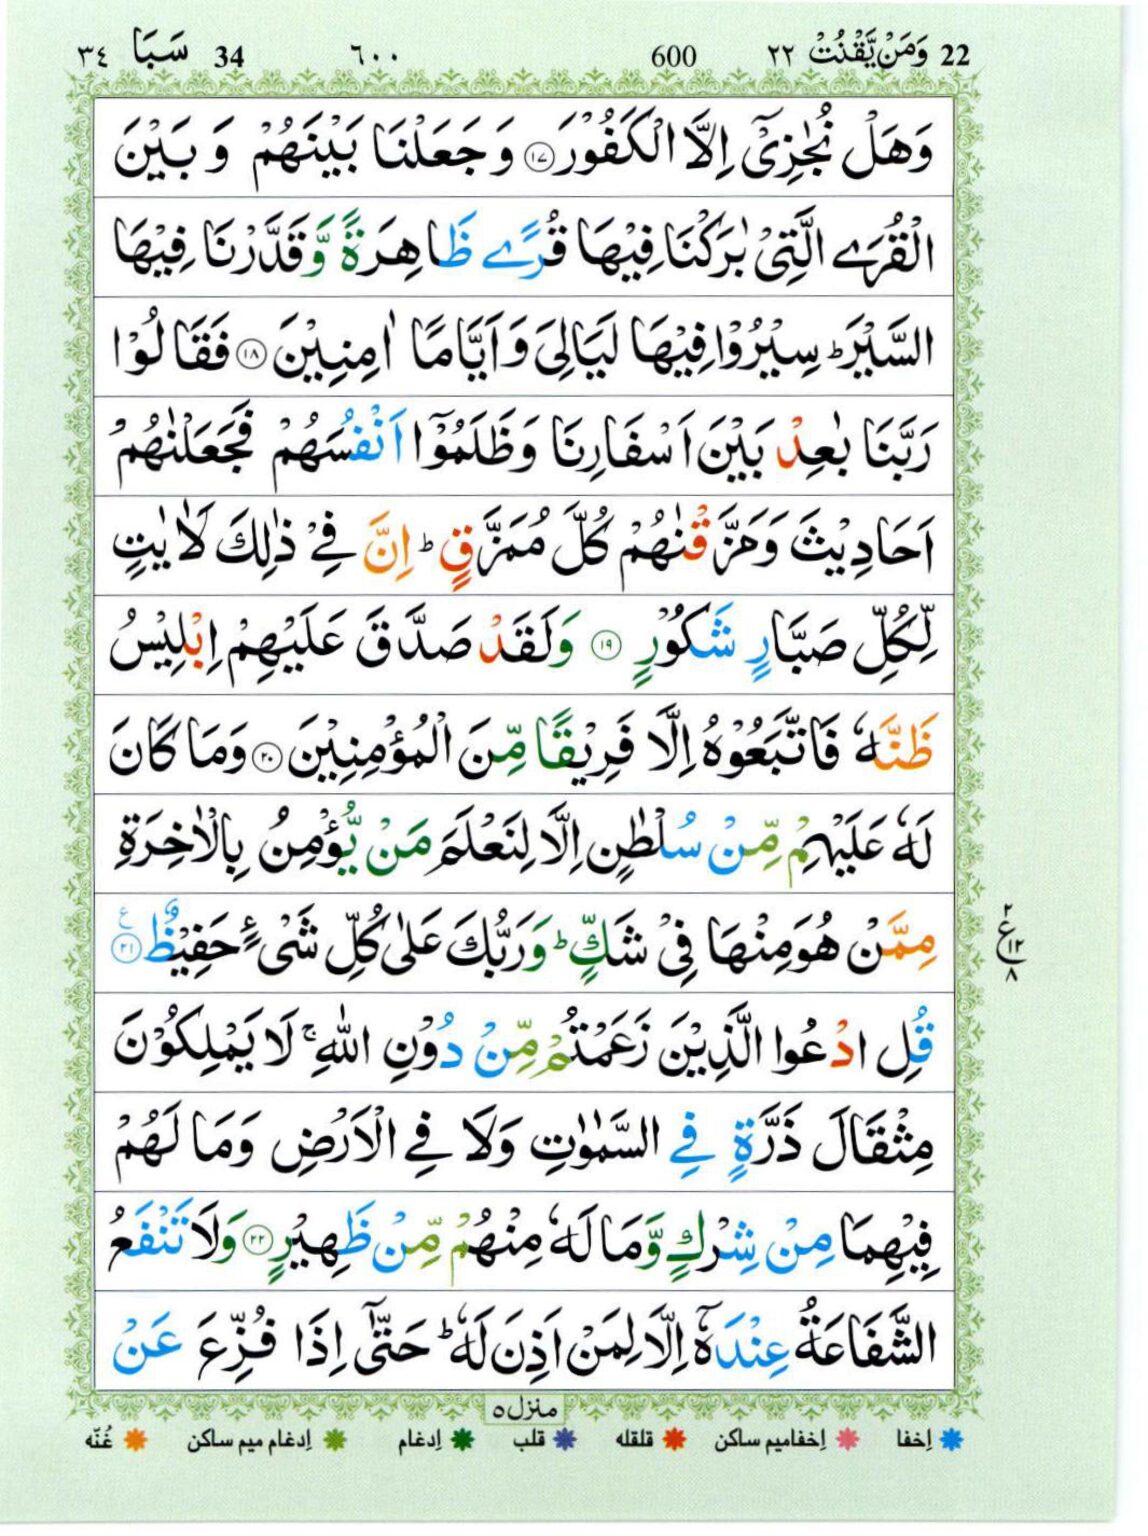 22 وَمَنْ يَّقْنُتْ ٢٢ 600 ٦٠٠ 34 سَبَا ٣٤
وَهَلْ نُجٰزِيْٓ اِلَّا الْكَفُوْرَ ۝١٧ وَجَعَلْنَا بَيْنَهُمْ وَبَيْنَ
الْقُرَى الَّتِيْ بٰرَكْنَا فِيْهَا قُرًى ظَاهِرَةً وَّقَدَّرْنَا فِيْهَا
السَّيْرَ ؕ سِيْرُوْا فِيْهَا لَيَالِيَ وَاَيَّامًا اٰمِنِيْنَ ۝١٨ فَقَالُوْا
رَبَّنَا بٰعِدْ بَيْنَ اَسْفَارِنَا وَظَلَمُوْٓا اَنْفُسَهُمْ فَجَعَلْنٰهُمْ
اَحَادِيْثَ وَمَزَّقْنٰهُمْ كُلَّ مُمَزَّقٍ ؕ اِنَّ فِيْ ذٰلِكَ لَاٰيٰتٍ
لِّكُلِّ صَبَّارٍ شَكُوْرٍ ۝١٩ وَلَقَدْ صَدَّقَ عَلَيْهِمْ اِبْلِيْسُ
ظَنَّهٗ فَاتَّبَعُوْهُ اِلَّا فَرِيْقًا مِّنَ الْمُؤْمِنِيْنَ ۝٢٠ وَمَا كَانَ
لَهٗ عَلَيْهِمْ مِّنْ سُلْطٰنٍ اِلَّا لِنَعْلَمَ مَنْ يُّؤْمِنُ بِالْاٰخِرَةِ
مِمَّنْ هُوَ مِنْهَا فِيْ شَكٍّ ؕ وَرَبُّكَ عَلٰى كُلِّ شَيْءٍ حَفِيْظٌ ۝٢١ ع
٢ ع ١٢ ٨
قُلِ ادْعُوا الَّذِيْنَ زَعَمْتُمْ مِّنْ دُوْنِ اللّٰهِ ۚ لَا يَمْلِكُوْنَ
مِثْقَالَ ذَرَّةٍ فِي السَّمٰوٰتِ وَلَا فِي الْاَرْضِ وَمَا لَهُمْ
فِيْهِمَا مِنْ شِرْكٍ وَّمَا لَهٗ مِنْهُمْ مِّنْ ظَهِيْرٍ ۝٢٢ وَلَا تَنْفَعُ
الشَّفَاعَةُ عِنْدَهٗٓ اِلَّا لِمَنْ اَذِنَ لَهٗ ؕ حَتّٰٓى اِذَا فُزِّعَ عَنْ
منزل ٥
اِخفا اِخفامیم ساکن قلقله قلب اِدغام اِدغام میم ساکن غُنّه